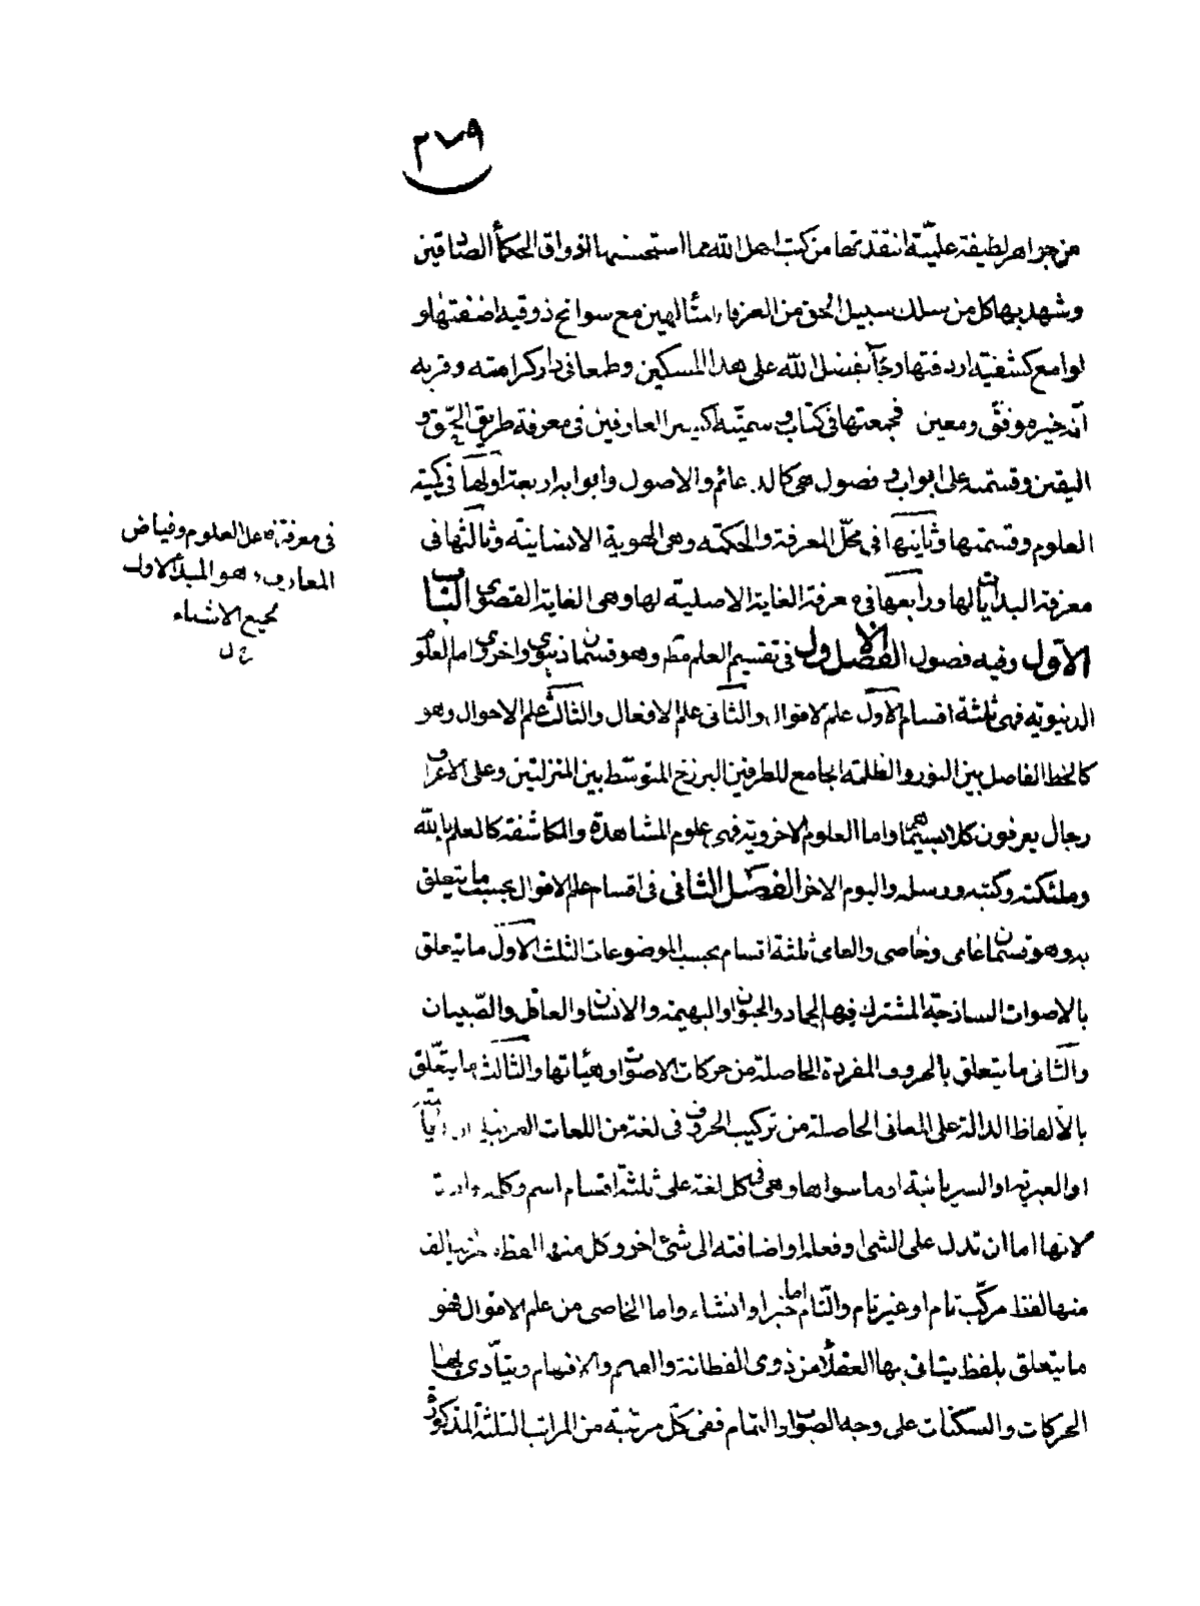 ٢٧٩
من جواهر لطيفة علميّة انتقدتها من كتب اهل الله مما استحسنها اذواق الحكمأ الصّادقين
وشهد بها كل من سلك سبيل الحق من العرفاء المتألهين مع سوانح ذوقيه اضفتها و
لوامع كشفيّة اردفتها رجآ بفضل الله على هذا المسكين وطمعا فى دار كرامته وقربه
انّه خير موفّق ومعين فجمعتها فى كتاب وسميّته اكسير العارفين فى معرفة طريق الحّق و
اليقين وقسّمته على ابواب و فصول هى كالدعائم والاصول وابوابه اربعة اولها فى كميّة
العلوم وقسمتها وثانيها فى محلّ المعرفة والحكمه وهى الهوية الانسانيّة وثالثها فى
معرفة البدايات لها ورابعها فى معرفة الغاية الاصلية لها وهى الغاية القصوى الباب
الاوّل وفيه فصول الفصل الاول فى تقسيم العلم مط وهو قسمان دنيوى واخروى اما العلوم
الدنيويّه فهى ثلثة اقسام الاول علم الاقوال والثانى علم الافعال والثالث علم الاحوال وهو
كالخط الفاصل بين النور والظلمة الجامع للطرفين البرزخ المتوسّط بين المنزلتين وعلى الاعراف
رجال يعرفون كلا بسيماهم واما العلوم الاخرويّه فهى علوم المشاهدة والمكاشفة كالعلم بالله
وملئكته وكتبه ورسله واليوم الاخر الفصل الثانى فى اقسام علم الاقوال بحسب ما يتعلق
به وهو قسمان عامى وخاصى والعامى ثلثة اقسام بحسب الموضوعات الثلث الاول ما يتعلق
بالاصوات الساذجة المشترك فيها الجماد والحيوان والبهيمة والانسان والعاقل والصّبيان
والثانى ما يتعلق بالحروف المفردة الحاصلة من حركات الاصوات وهيأتها والثالث ما يتعّلق
بالالفاظ الدالة على المعانى الحاصلة من تركيب الحروف فى لغة من اللغات العربية
او العبريه او السريانية او ما سواها وهى فى كل لغة على ثلثة اقسام اسم وكلمه واداة
لانها اما ان تدل على الشئ او فعله او اضافته الى شئ اخر وكل منها
منها لفظ مركّب تام او غير تام والتّام اما خبر او انشاء واما الخاصى من علم الاقوال فهو
ما يتعلق بلفظ يتانى بها العقلأ من ذوى الفطانة والفهم والافهام ويتأدى بها
الحركات والسكنات على وجه الصواب والتمام ففى كلّ مرتبة من المراتب الثلثة المذكورة
فى معرفة فاعل العلوم وفياض
المعارف وهو المبدأ الاول
لجميع الاشياء